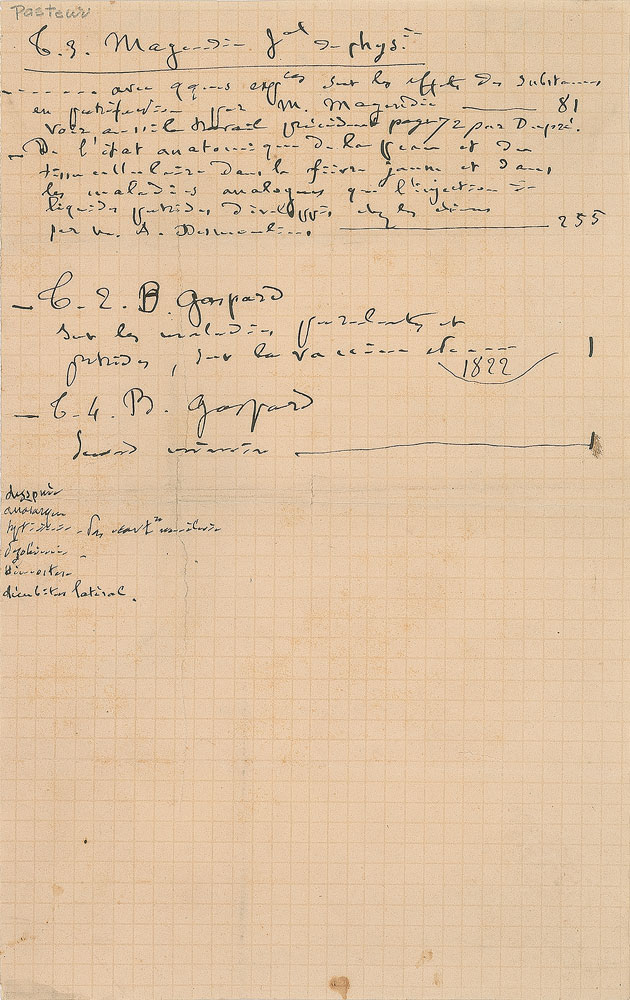 Pasteur
T. 3. Magendie Jal de physie
------- avec qques expces sur les effets des substances
en putréfaction par M. Magendie ——— 81
Voir aussi le travail précédent page 72 par Dupré.
— De l'état anatomique de la peau et du
tissu cellulaire dans la fièvre jaune et dans
les maladies analogues que l'injection de
liquides putrides développe chez les chiens
par M. A. Desmoulins. ——— 255
— T. 2. B Gaspard
Sur les maladies purulentes et
putrides, sur la vaccine etc ---- 1
1822
— T. 4. B. Gaspard
Second mémoire ——— 1
dyspnée
anasarque
des mouvts
décubitus latéral.